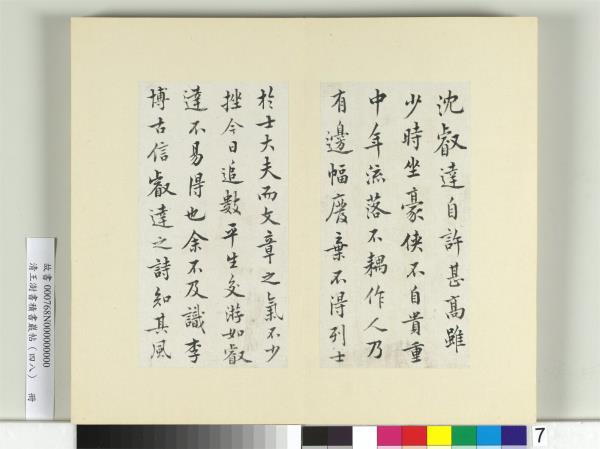 沈叡達自許甚高雖
少時坐豪俠不自貴重
中年流落不耦作人乃
有邊幅廢棄不得列士
於士大夫而文章之氣不少
挫今日追數平生交游如叡
達不易得也余不及識李
博古信叡達之詩知其風
故書000768N000000000
清王澍書積書巖帖（四八） 冊
7